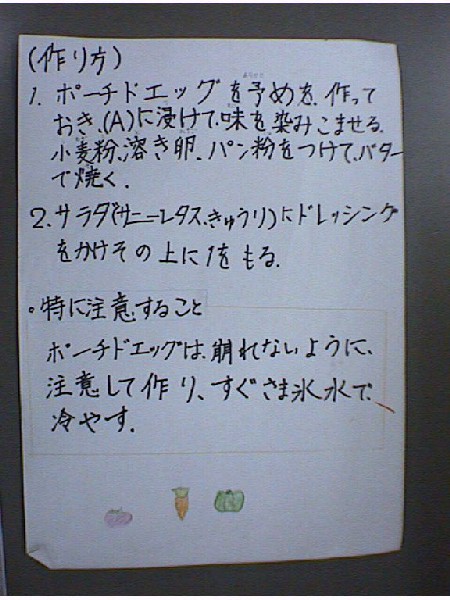 (作り方)
1. ポーチドエッグを予めを、作って
おき、(A)に浸けて、味を染みこませる。
小麦粉、溶き卵、パン粉をつけて、バター
で焼く。
2. サラダ(サニーレタス、きゅうり)にドレッシング
をかけその上に1をもる。
。特に注意すること
ポーチドエッグは、崩れないように、
注意して作り、すぐさま氷水で、
冷やす。